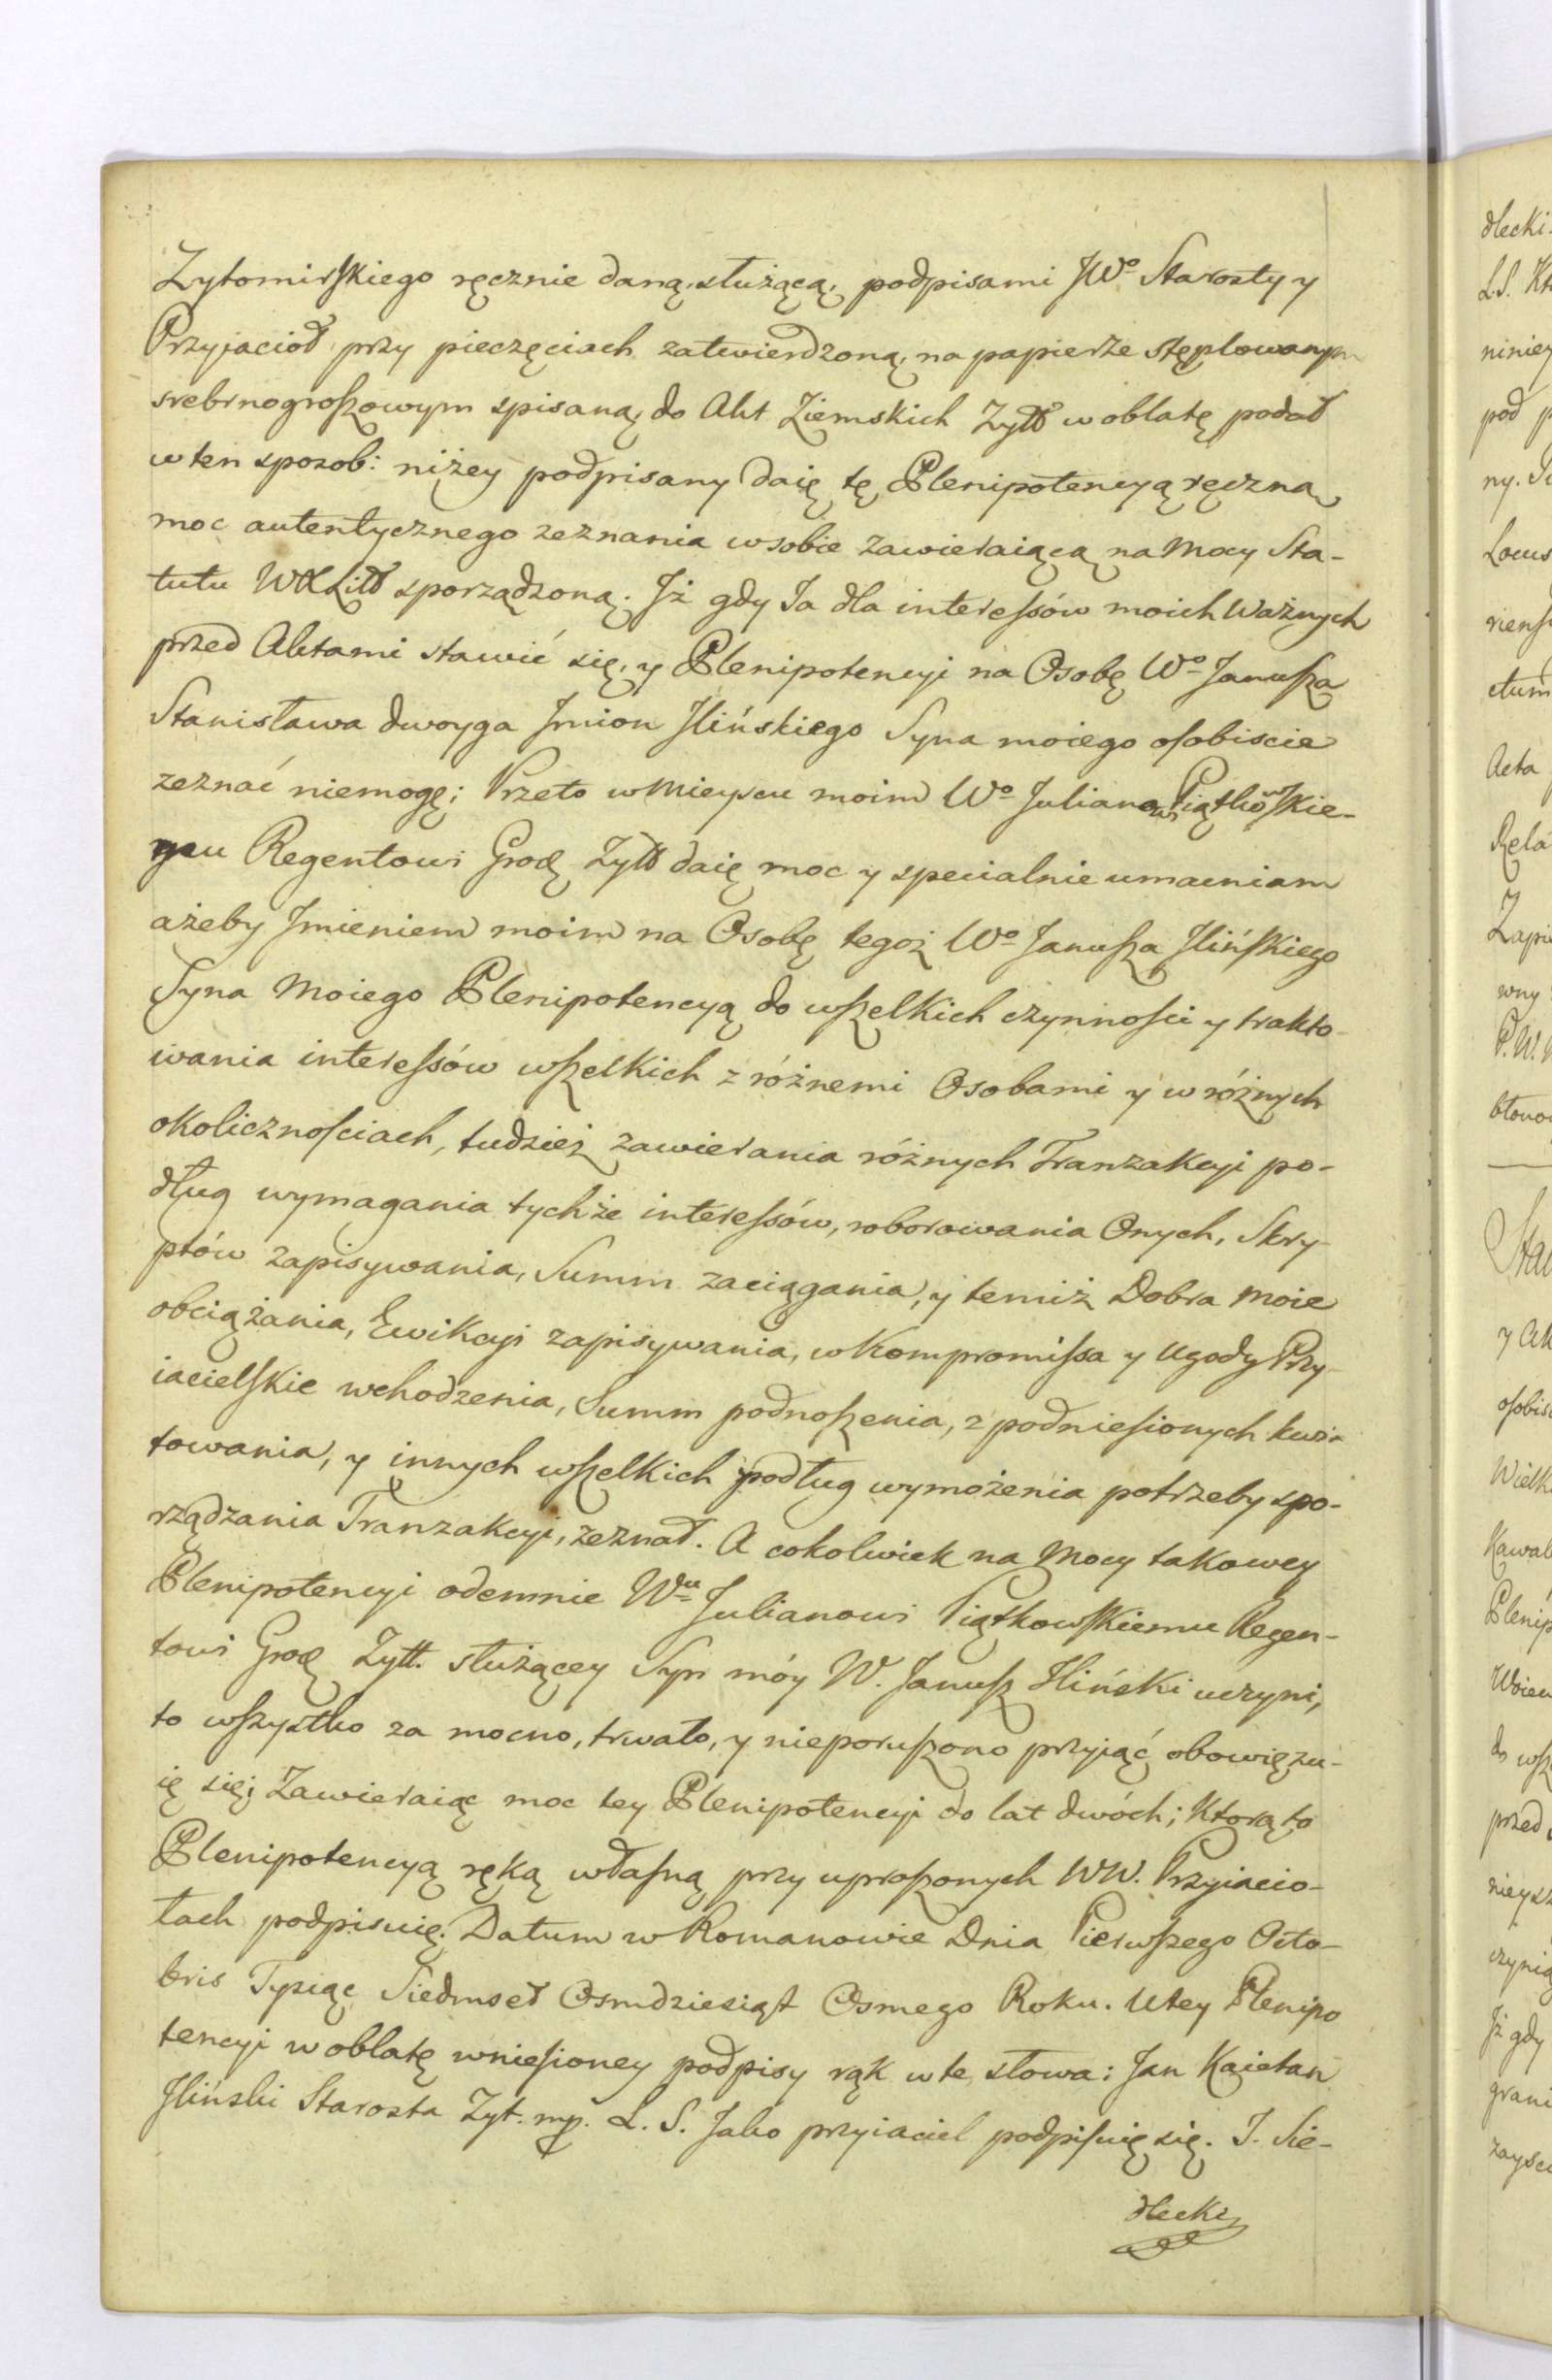 Zytomirskiego ręcznie daną, służącą, podpisami JWo Starosty y
Przyjacioł przy pieczęciach zatwierdzoną, na papierze stęplowanym
srebrnogroszowym spisaną, do Akt Ziemskich Zytt w oblatę podał
w ten sposob: niżey podpisany daię tę Plenipotencyą ręczną
moc autentycznego zeznania w sobie zawieraiącą na Mocy Sta-
tutu WXLitt sporządzoną. Jż gdy Ja dla interessów moich Ważnych
przed Aktami stawić się, y Plenipotencyi na Osobę Wo Janusza
Stanisława dwoyga Jmion Jlińskiego Syna moiego osobiscie
zeznać niemogę; Przeto w Mieyscu moim Wo Julianowi Piątkowskie-
mu Regentowi Grodz Zytt daię moc y specialnie umacniam
ażeby Jmieniem moim na Osobę tegoż Wo Janusza Jlińskiego
Syna Moiego Plenipotencyą do wszelkich czynnosci y trakto-
wania interessów wszelkich z różnemi Osobami y w różnych
okolicznosciach, tudzież zawierania różnych Tranzakcyi po-
dług wymagania tychże interessów, roborowania Onych, Skry-
ptów zapisywania, Summ zaciągania, y temiż Dobra Moie
obciążania, Ewikcyi zapisywania, w Kompromissa y Ugody Przy-
iacielskie wchodzenia, Summ podnoszenia, z podniesionych kwi-
towania, y innych wszelkich podług wymożenia potrzeby spo-
rządzania Tranzakcyi, zeznał. A cokolwiek na Mocy takowey
Plenipotencyi odemnie Wmu Julianowi Piątkowskiemu Regen-
towi Grodz Zytt. służącey Syn móy W. Janusz Jliński uczyni,
to wszystko za mocno, trwało, y nieporuszono przyjąć obowięzu-
ię się; Zawieraiąc moc tey Plenipotencyi do lat dwóch; Ktorą to
Plenipotencyą ręką własną przy uproszonych WW. Przyiacio-
łach podpisuię. Datum w Romanowie Dnia Pierwszego Octo-
bris Tysiąc Siedmset Osmdziesiąt Osmego Roku. U tey Plenipo
tencyi w oblatę wniesioney podpisy rąk w te słowa: Jan Kaietan
Jliński Starosta Zyt. mp. L. S. Jako przyiaciel podpisuię się. J. Sie-
dlecki